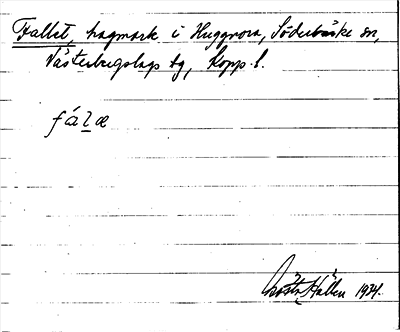 Fallet, hagmark i Huggnora, Söderbärke sn,
Västerbergslags dg, Kopp. l.
fálæ
Gösta Hallén 1934.